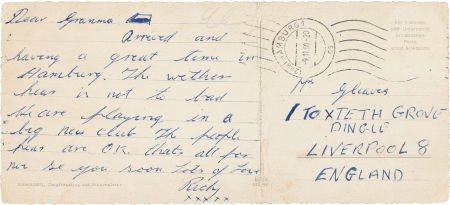 Dear Granma
Arrived and
having a great time in
Hamburg. The wether
hear is not to bad
We are playing in a
big new club The people
hear are OK. thats all for
now se you soon lots of love
Richy
xxxxx
HAMBURG
Mrs
Gleaves
1 TOXTETH GROVE
DINGLE
LIVERPOOL 8
ENGLAND